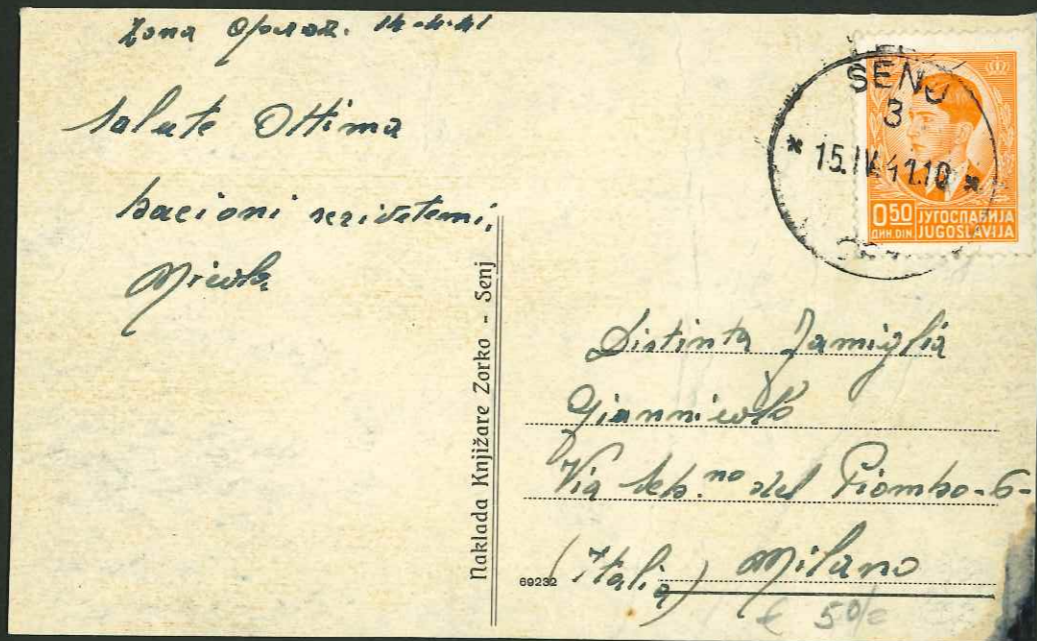 Zona Operaz. 14-4-41
Salute Ottima
bacioni scrivetemi,
Nicola
Naklada Knjižare Zorko - Senj
SENJ
3
* 15.IV.41.10 *
050 ЈУГОСЛАВИЈА
ДИН. DIN JUGOSLAVIJA
Distinta Famiglia
Giannicola
Via Seb.no del Piombo-6-
(Italia) Milano
69232